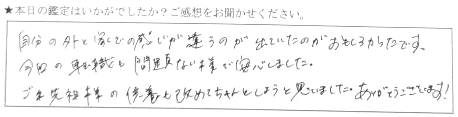 ★本日の鑑定はいかがでしたか？ご感想をお聞かせください。
自分の外と家での感じが違うのが出ていたのがおもしろかったです。
今回の転職も問題ない様で安心しました。
ご先祖様の供養も改めてちゃんとしようと思いました。ありがとうございます！